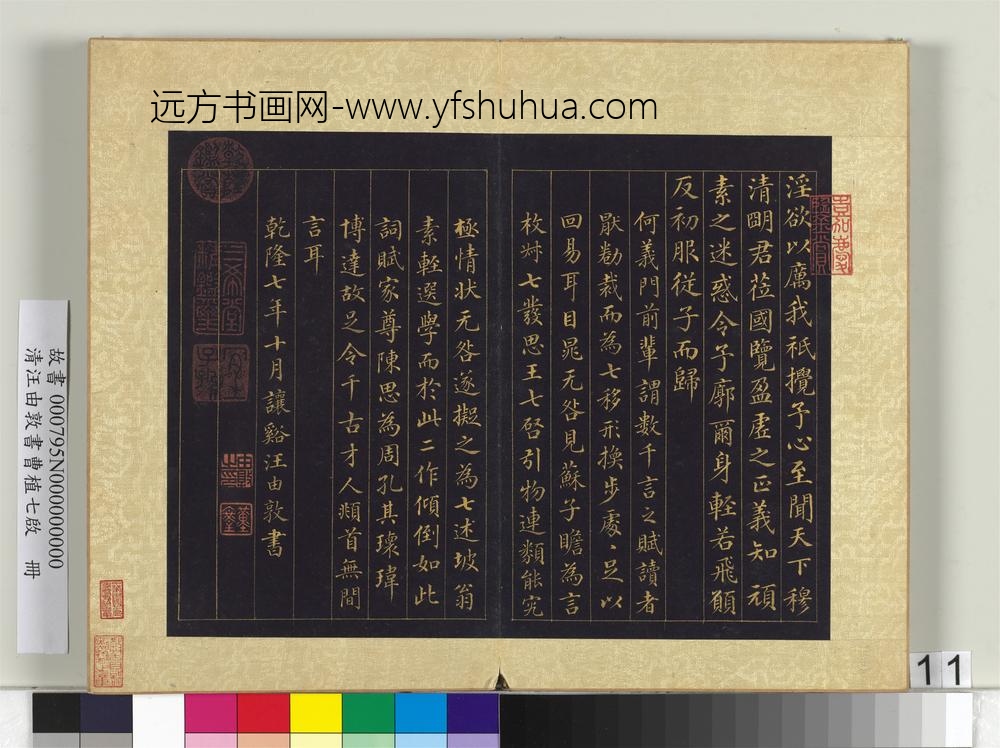 远方书画网-www.yfshuhua.com
淫欲以厲我祇攪予心至聞天下穆
清明君莅國覽盈虛之正義知頑
素之迷惑令予廓爾身輕若飛願
反初服從子而歸
何義門前輩謂數千言之賦讀者
厭勸裁而為七移形換步處〻足以
回易耳目晁无咎見蘇子瞻為言
枚叔七發思王七啓引物連類能究
極情狀无咎遂擬之為七述坡翁
素輕選學而於此二作傾倒如此
詞賦家尊陳思為周孔其瓌瑋
博達故足令千古才人頫首無間
言耳
乾隆七年十月讓谿汪由敦書
故書 000795N000000000
清汪由敦書曹植七啟 冊
11